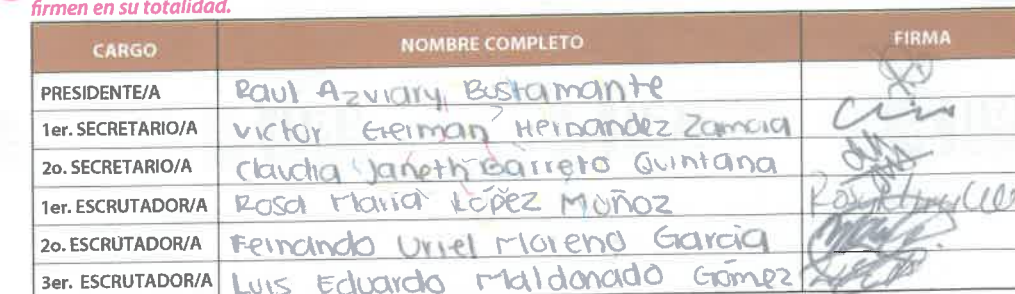 firmen en su totalidad.
CARGO NOMBRE COMPLETO FIRMA
PRESIDENTE/A Raul Azviary Bustamante
1er. SECRETARIO/A Victor German Hernandez Zamcia
2o. SECRETARIO/A Claudia Janeth Barreto Quintana
1er. ESCRUTADOR/A Rosa Maria López Muñoz
2o. ESCRUTADOR/A Fernando Uriel Moreno Garcia
3er. ESCRUTADOR/A Luis Eduardo Maldonado Gómez